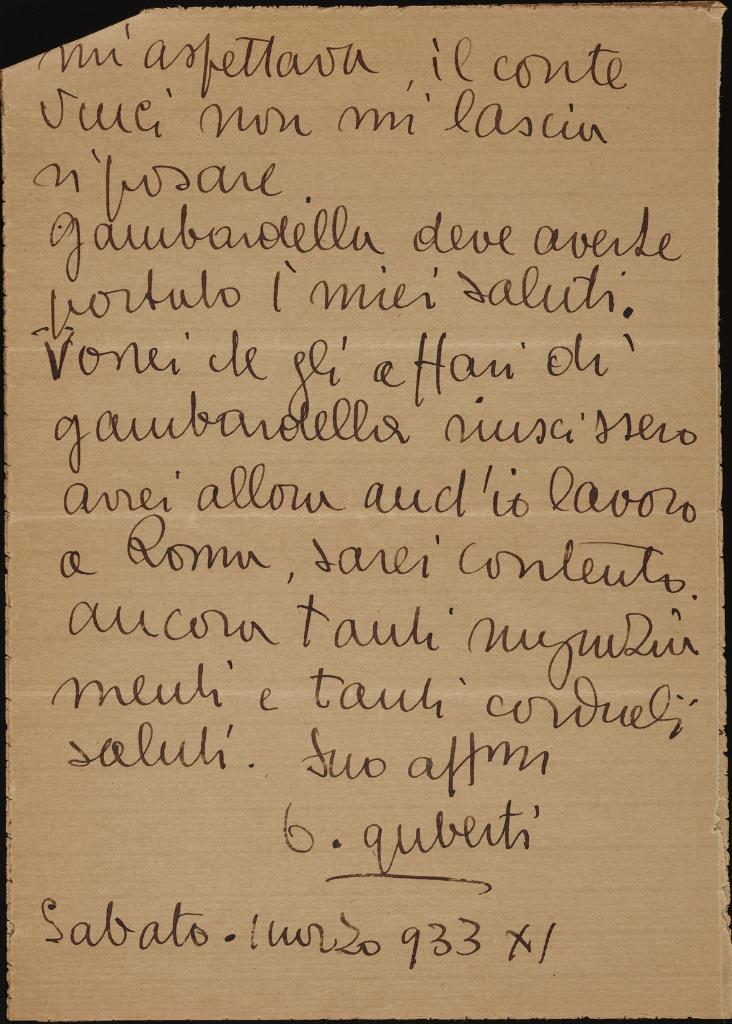 mi aspettava, il conte
Vinci non mi lascia
riposare.
Gambardella deve averle
portato i miei saluti.
Vorrei che gli affari di
Gambardella riuscissero
avrei allora anch'io lavoro
a Roma, sarei contento.
ancora tanti ringrazia
menti e tanti cordiali
saluti. Suo affmo
G. Guberti
Sabato. marzo 933 XI